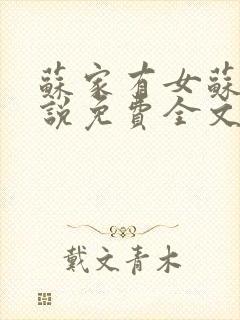 蘇家有女蘇
說免費全文
戴文青木